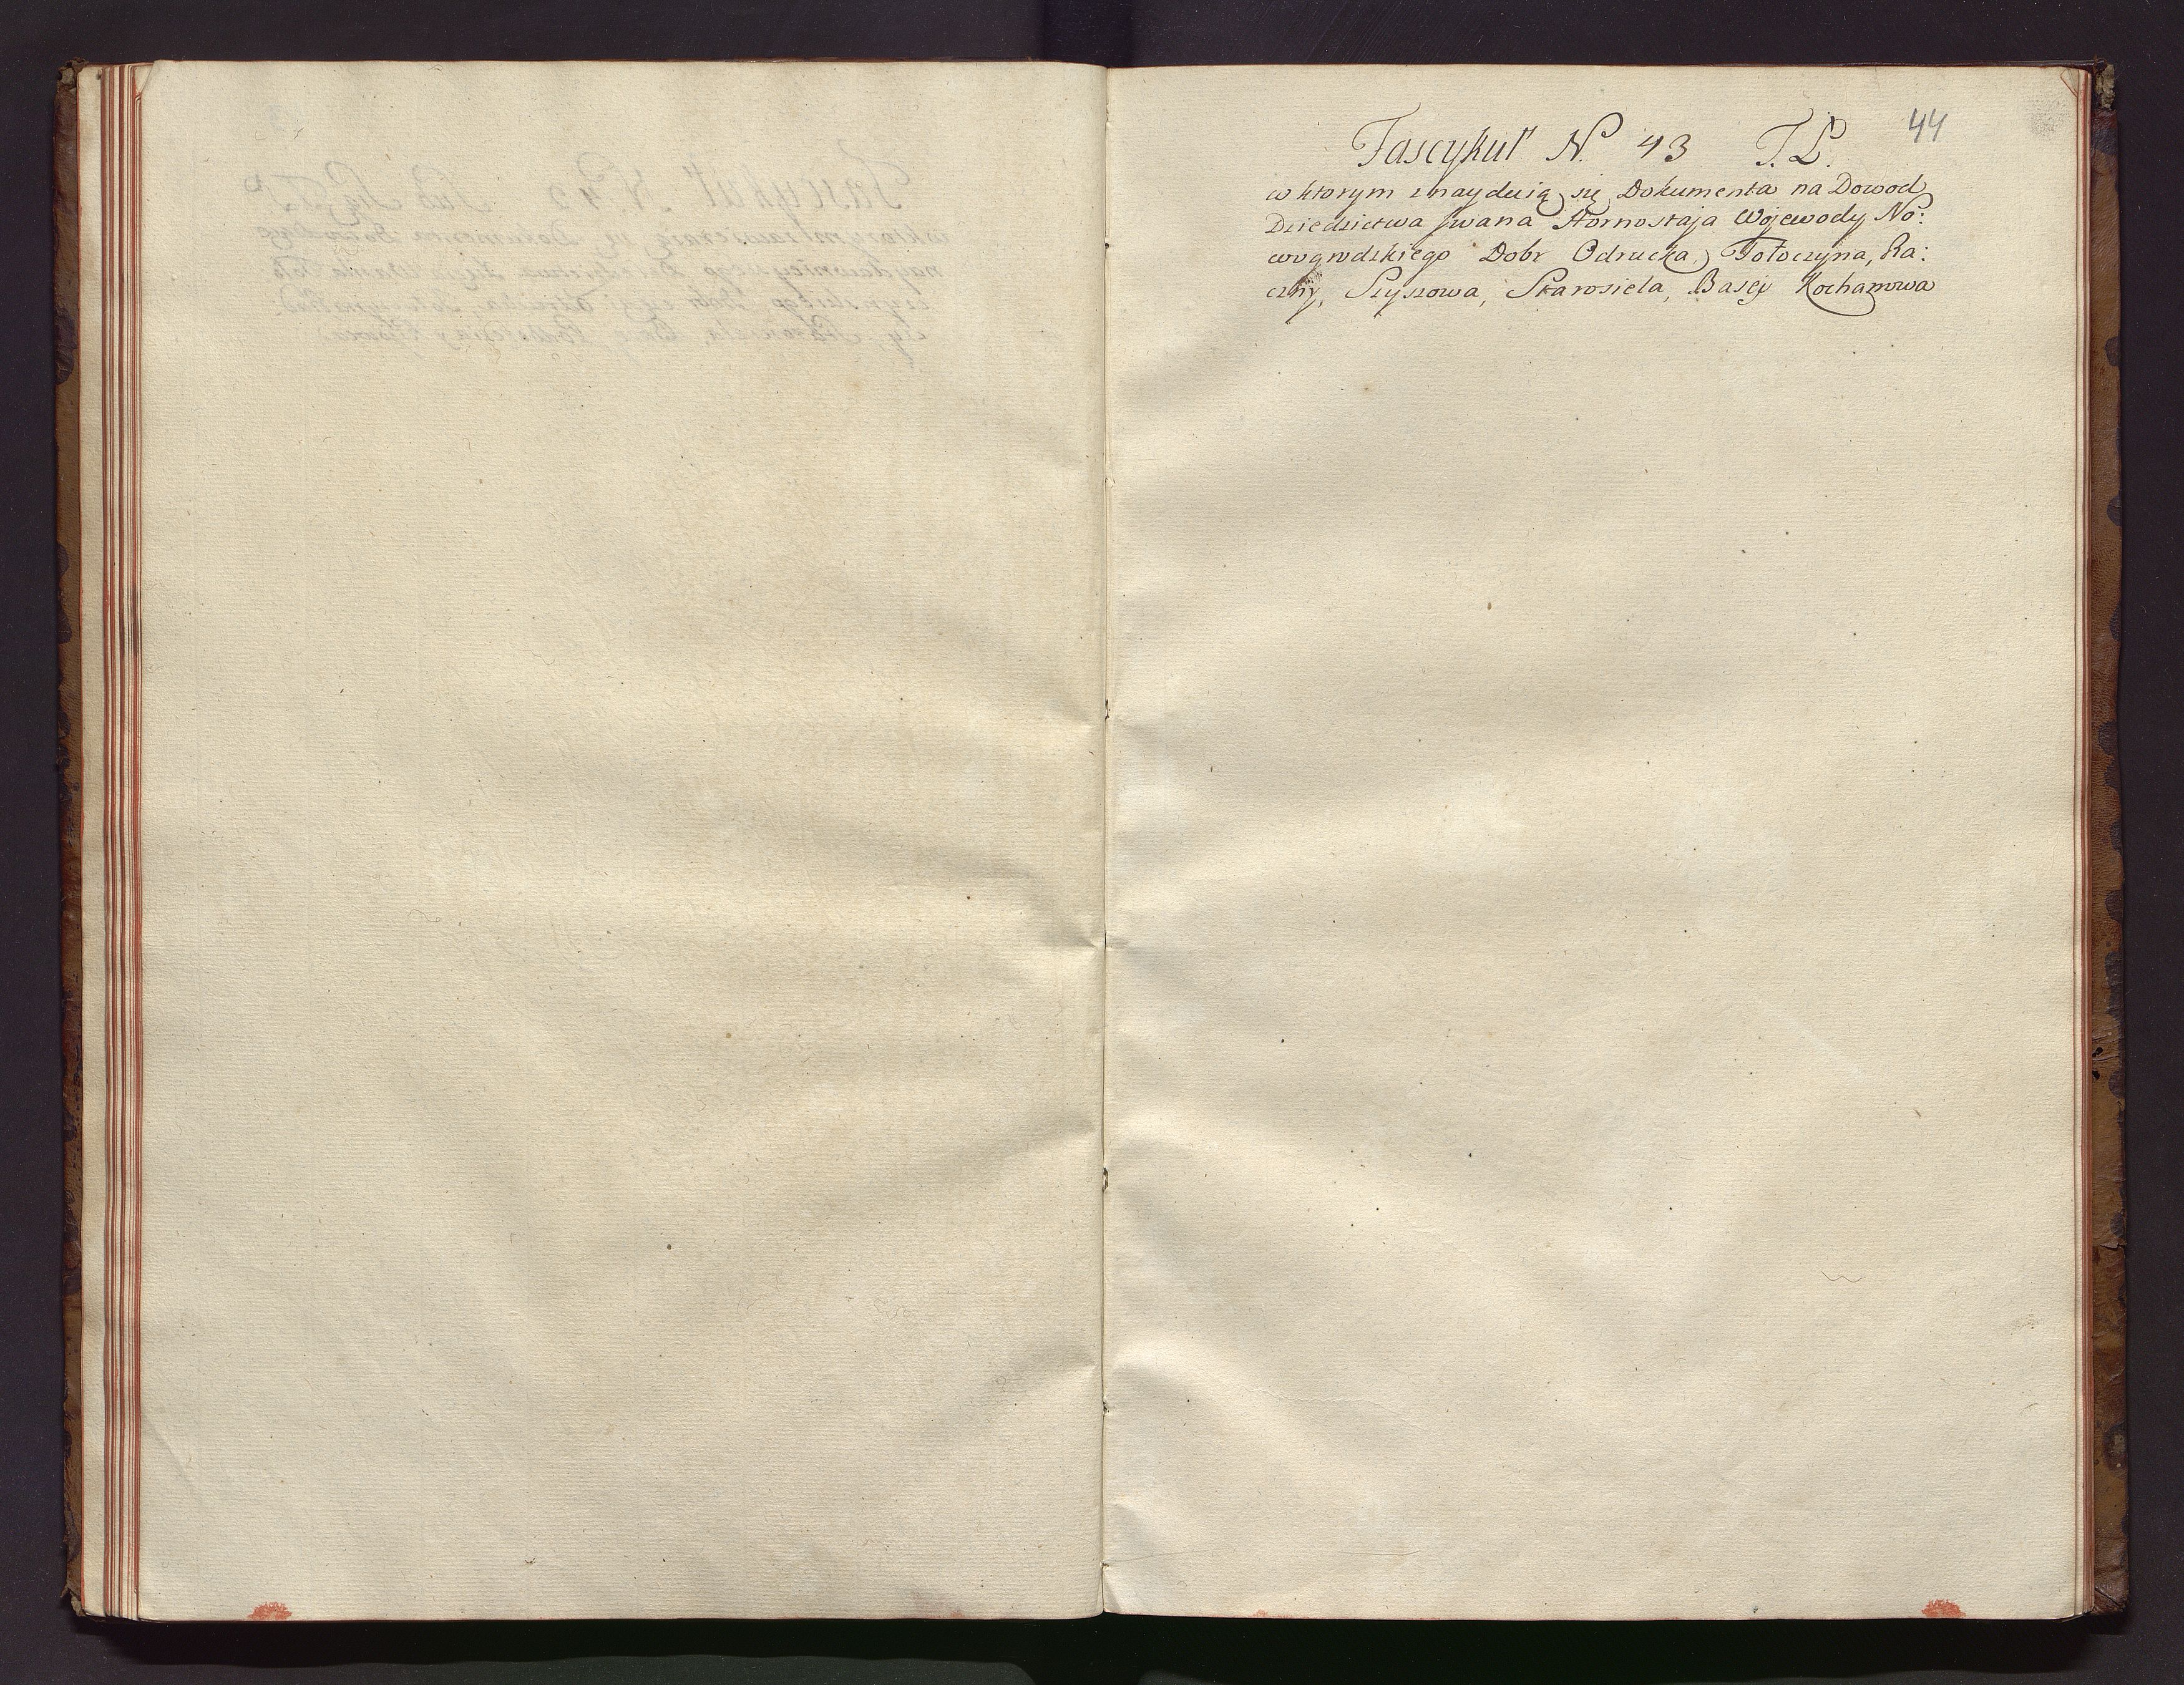 44
Fascykuł N. 43 T. L.
w ktorym znayduią się Dokumenta na Dowod
Dziedzictwa Jwana Hornostaja Wojewody No:
wogrodzkiego Dobr Odrucka, Tołoczyna, Ra:
czny, Szyszowa, Starosiela, Basey Kochanowa